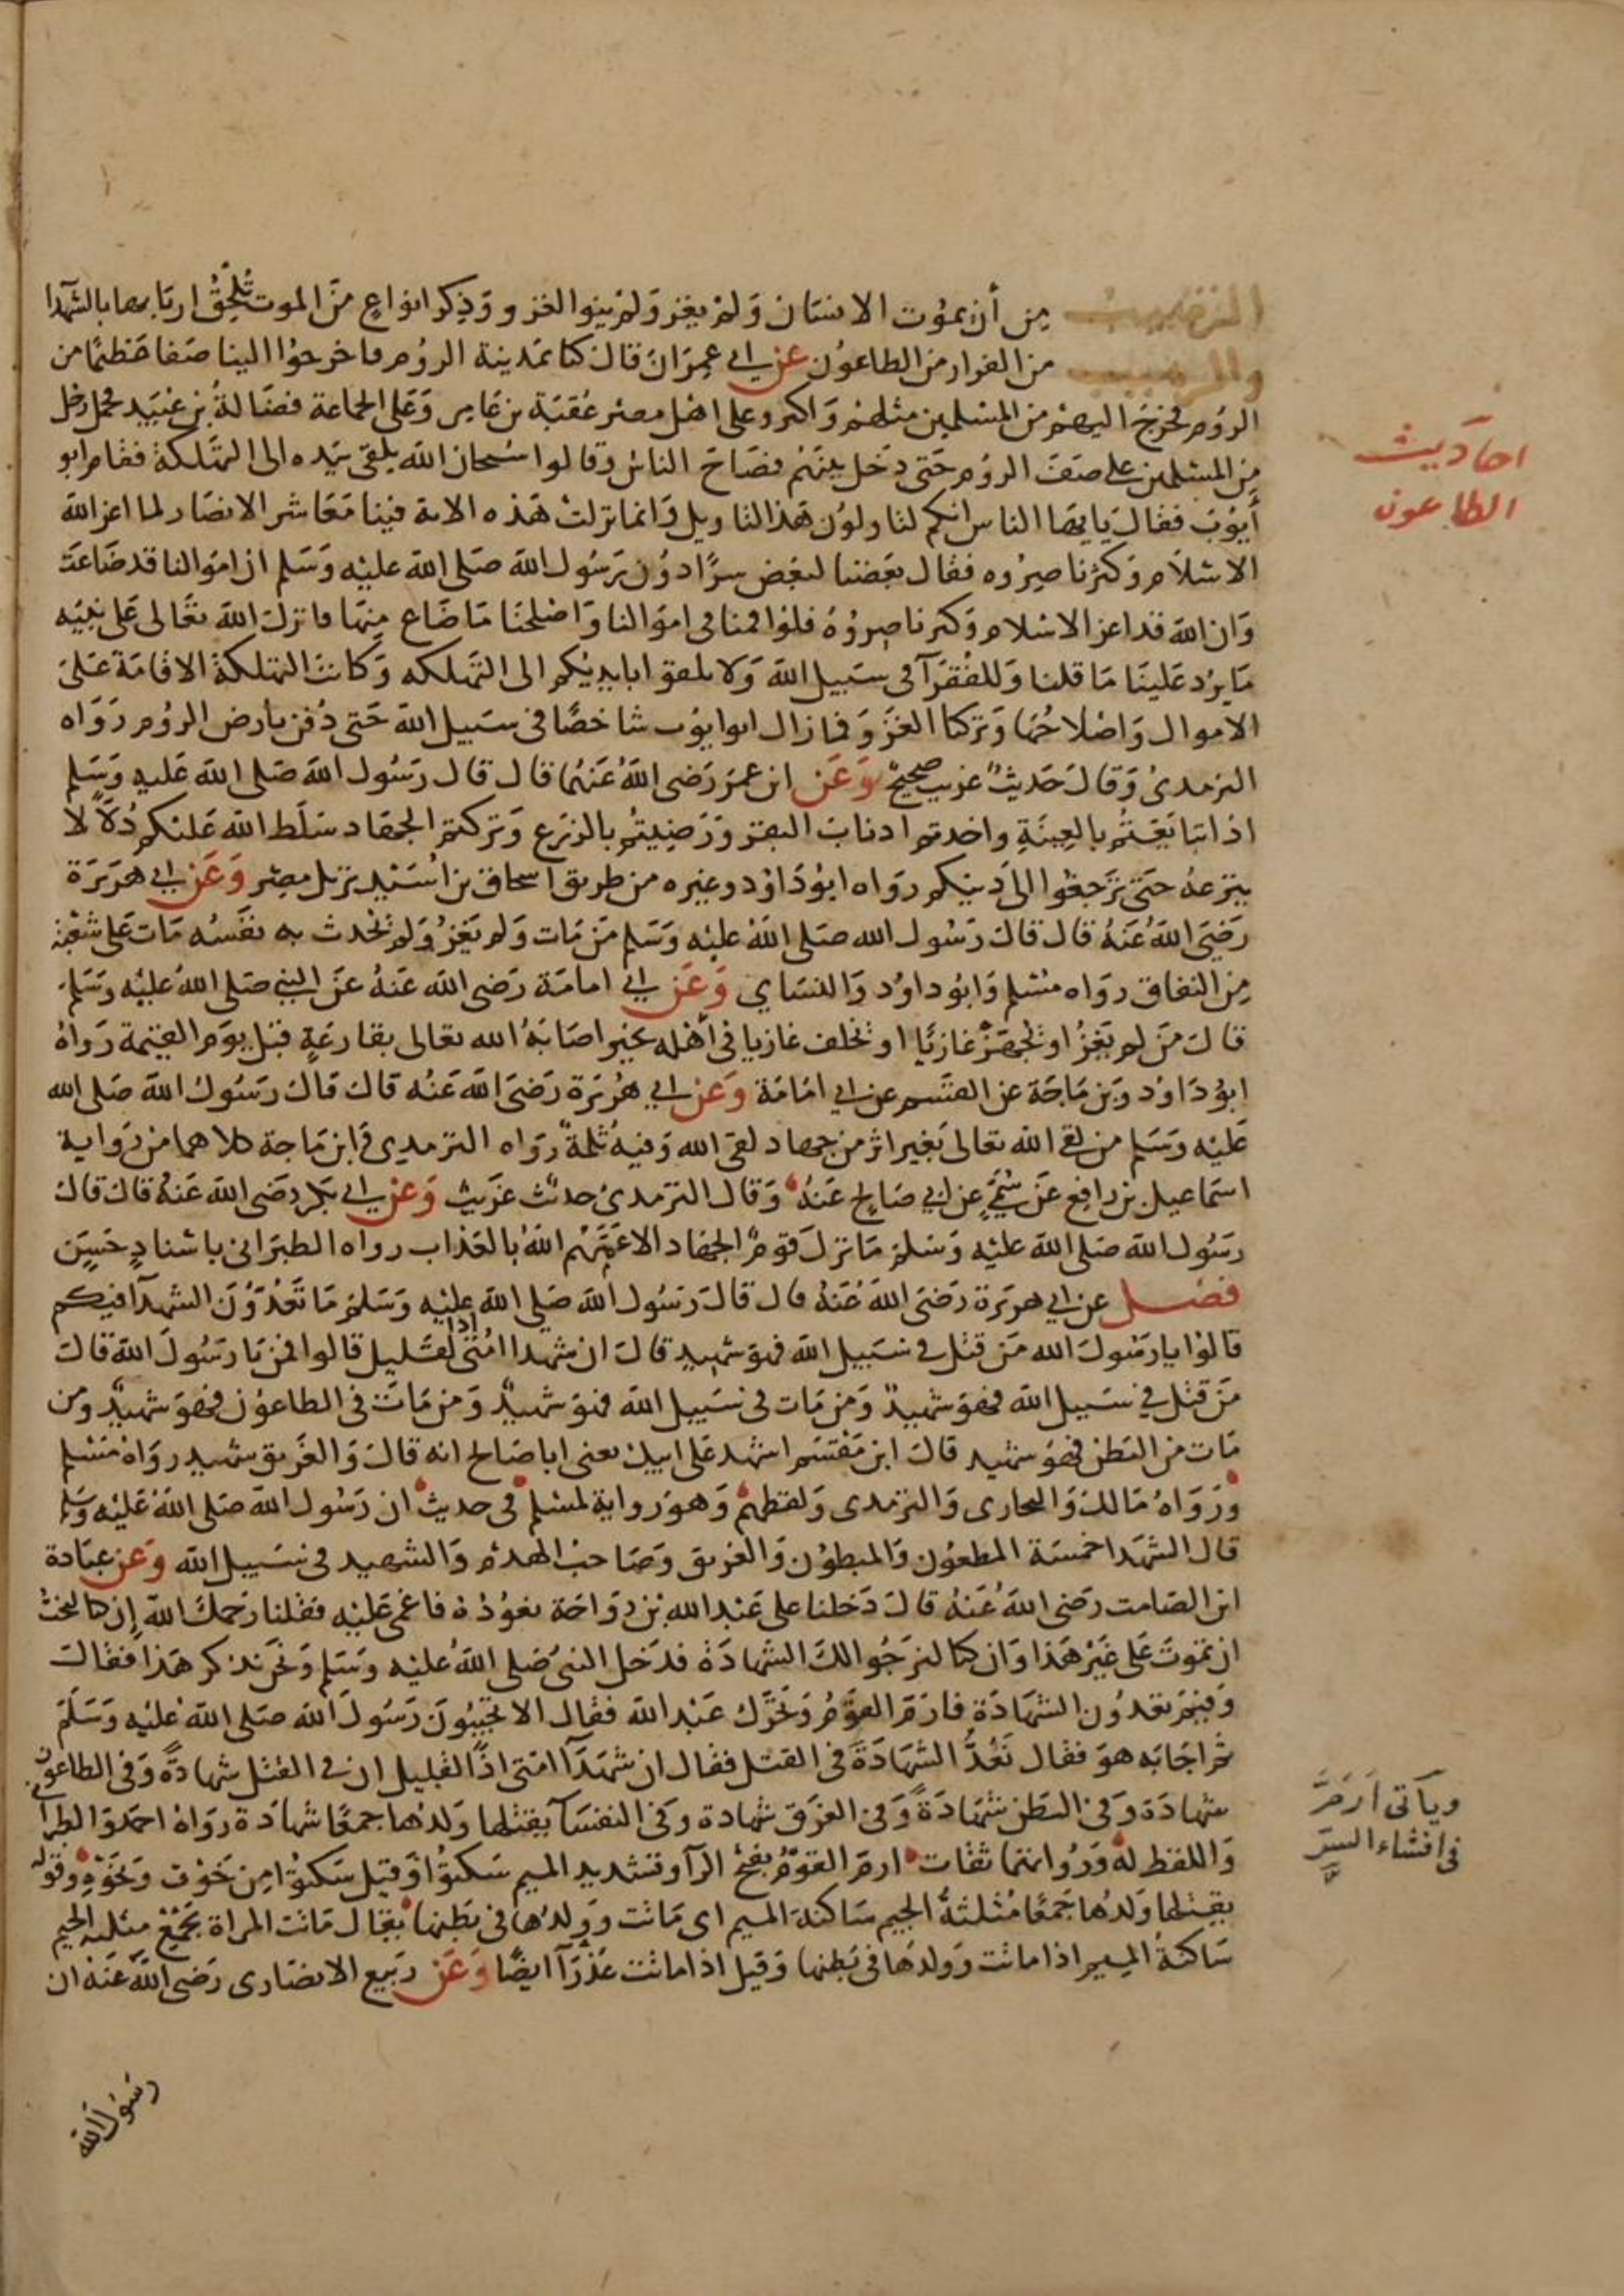 الترهيب من أن يموت الانسان ولم يغز ولم ينو الغزو وذكر انواع من الموت تلحق اربابها بالشهدا
والترهيب من الفرار من الطاعون عن ابي عمران قال كنا بمدينة الروم فاخرجوا الينا صفا عظيما من
الروم فخرج اليهم من المسلمين مثلهم واكثر وعلى اهل مصر عقبة بن عامر وعلى الجماعة فضالة بن عبيد فحمل رجل
من المسلمين على صف الروم حتى دخل بينهم فصاح الناس وقالوا سبحان الله يلقى بيده الى التهلكة فقام ابو
أيوب فقال يا يها الناس انكم لتاولون هذا التاويل وانما نزلت هذه الاية فينا معاشر الانصار لما اعز الله
الاسلام وكثر ناصروه فقال بعضنا لبعض سرا دون رسول الله صلى الله عليه وسلم ان اموالنا قد ضاعت
وان الله قد اعز الاسلام وكثر ناصروه فلو اقمنا في اموالنا واصلحنا ما ضاع منها فانزل الله تعالى على نبيه
ما يرد علينا ما قلنا وللفقرآ في سبيل الله ولا تلقوا بايديكم الى التهلكه وكانت التهلكة الاقامة على
الاموال واصلاحها وتركنا الغزو فما زال ابو ايوب شاخصا في سبيل الله حتى دفن بارض الروم رواه
الترمدى وقال حديث غريب صحيح وعن ابن عمر رضى الله عنهما قال قال رسول الله صلى الله عليه وسلم
اذا تبايعتم بالعينة واخذتم اذناب البقر ورضيتم بالزرع وتركتم الجهاد سلط الله عليكم ذلا لا
ينزعه حتى ترجعوا الى دينكم رواه ابو داود وغيره من طريق اسحاق بن اسيد نزيل مصر وعن ابي هريرة
رضى الله عنه قال قال رسول الله صلى الله عليه وسلم من مات ولم يغز ولم تحدث به نفسه مات على شعبة
من النفاق رواه مسلم وابو داود والنساي وعن ابي امامة رضى الله عنه عن النبي صلى الله عليه وسلم
قال من لم يغز او يجهز غازيا او يخلف غازيا في أهله بخير اصابه الله تعالى بقارعة قبل يوم القيمة رواه
ابو داود وبن ماجة عن القسم عن ابي امامة وعن ابي هريرة رضى الله عنه قال قال رسول الله صلى الله
عليه وسلم من لقى الله تعالى بغير اثر من جهاد لقى الله وفيه ثلمة رواه الترمدى وابن ماجة كلاهما من رواية
اسماعيل بن رافع عن سمي عن ابي صالح عنه وقال الترمدى حديث غريب وعن ابي بكر رضى الله عنه قال قال
رسول الله صلى الله عليه وسلم ما ترك قوم الجهاد الا عمهم الله بالعذاب رواه الطبرانى باسناد حسن
فصل عن ابي هريرة رضى الله عنه قال قال رسول الله صلى الله عليه وسلم ما تعدون الشهدآ فيكم
قالوا يا رسول الله من قتل في سبيل الله فهو شهيد قال ان شهدا امتى اذا لقليل قالوا فمن يا رسول الله قال
من قتل في سبيل الله فهو شهيد ومن مات في سبيل الله فهو شهيد ومن مات في الطاعون فهو شهيد ومن
مات من البطن فهو شهيد قال ابن مقسم اشهد على ابيك يعنى ابا صالح انه قال والغريق شهيد رواه مسلم
ورواه مالك والبحارى والترمدى ولفظهم وهو رواية لمسلم في حديث ان رسول الله صلى الله عليه وسلم
قال الشهدا خمسة المطعون والمبطون والغريق وصاحب الهدم والشهيد في سبيل الله وعن عبادة
ابن الصامت رضى الله عنه قال دخلنا على عبد الله بن رواحة نعوده فاغمى عليه فقلنا رحمك الله ان كنا لنحب
ان تموت على غير هذا وان كنا لنرجوا لك الشهادة فدخل النبى صلى الله عليه وسلم ونحن نذكر هذا فقال
وفيم تعدون الشهادة فارم القوم وتحرك عبد الله فقال الا تجيبون رسول الله صلى الله عليه وسلم
ثم اجابه هو فقال نعد الشهادة في القتل فقال ان شهدآ امتى اذا لقليل ان في القتل شهادة وفى الطاعون
شهادة وفى البطن شهادة وفى الغرق شهادة وفى النفسآ يقتلها ولدها جمعا شهادة رواه احمد والطبرآ
واللفظ له ورواتهما ثقات ارم القوم بفتح الرآ وتشديد الميم سكتوا وقيل سكتوا من خوف ونحوه وقوله
يقتلها ولدها جمعا مثلثة الجيم ساكنة الميم اى ماتت وولدها في بطنها يقال ماتت المراة بجمع مثلثه الجيم
ساكنة الميم اذا ماتت وولدها في بطنها وقيل اذا ماتت عذرآ ايضا وعن ربيع الانصارى رضى الله عنه ان
رسول الله
احاديث
الطاعون
وياتى ارم
في افشاء السر